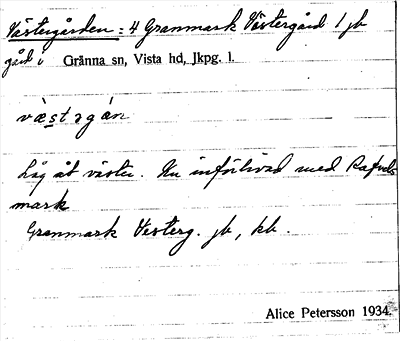 Västergården : 4 Granmark Västergård 1 jb
gård i Gränna sn, Vista hd, Jkpg. l.
væ̀stəgán
Låg åt väster. Nu införlivad med Rafvels
mark
Granmark Vesterg. jb, kb.
Alice Petersson 1934.